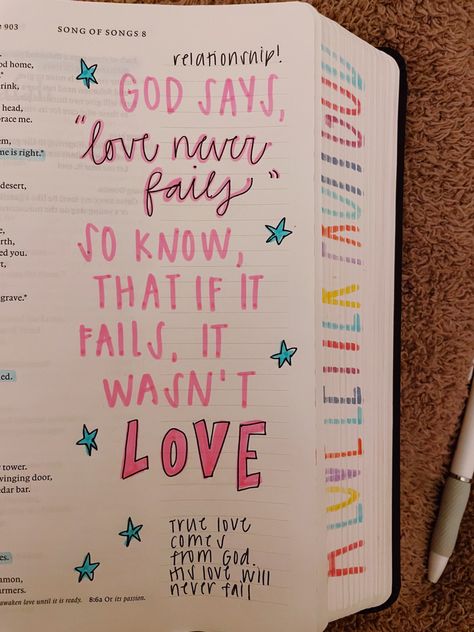 903
SONG OF SONGS 8
relationship!
GOD SAYS,
"love never
fails"
SO KNOW,
THAT IF IT
FAILS, IT
WASN'T
LOVE
True love
comes
from God.
His love will
never fail
od home,
rink,
head,
race me.
em,
me is right."
desert,
e,
rth,
ed you.
t,
grave.*
ed.
tower.
winging door,
edar bar.
es.
mmon,
armers.
awaken love until it is ready. 8:6a Or its passion.
A LOVE LETTER